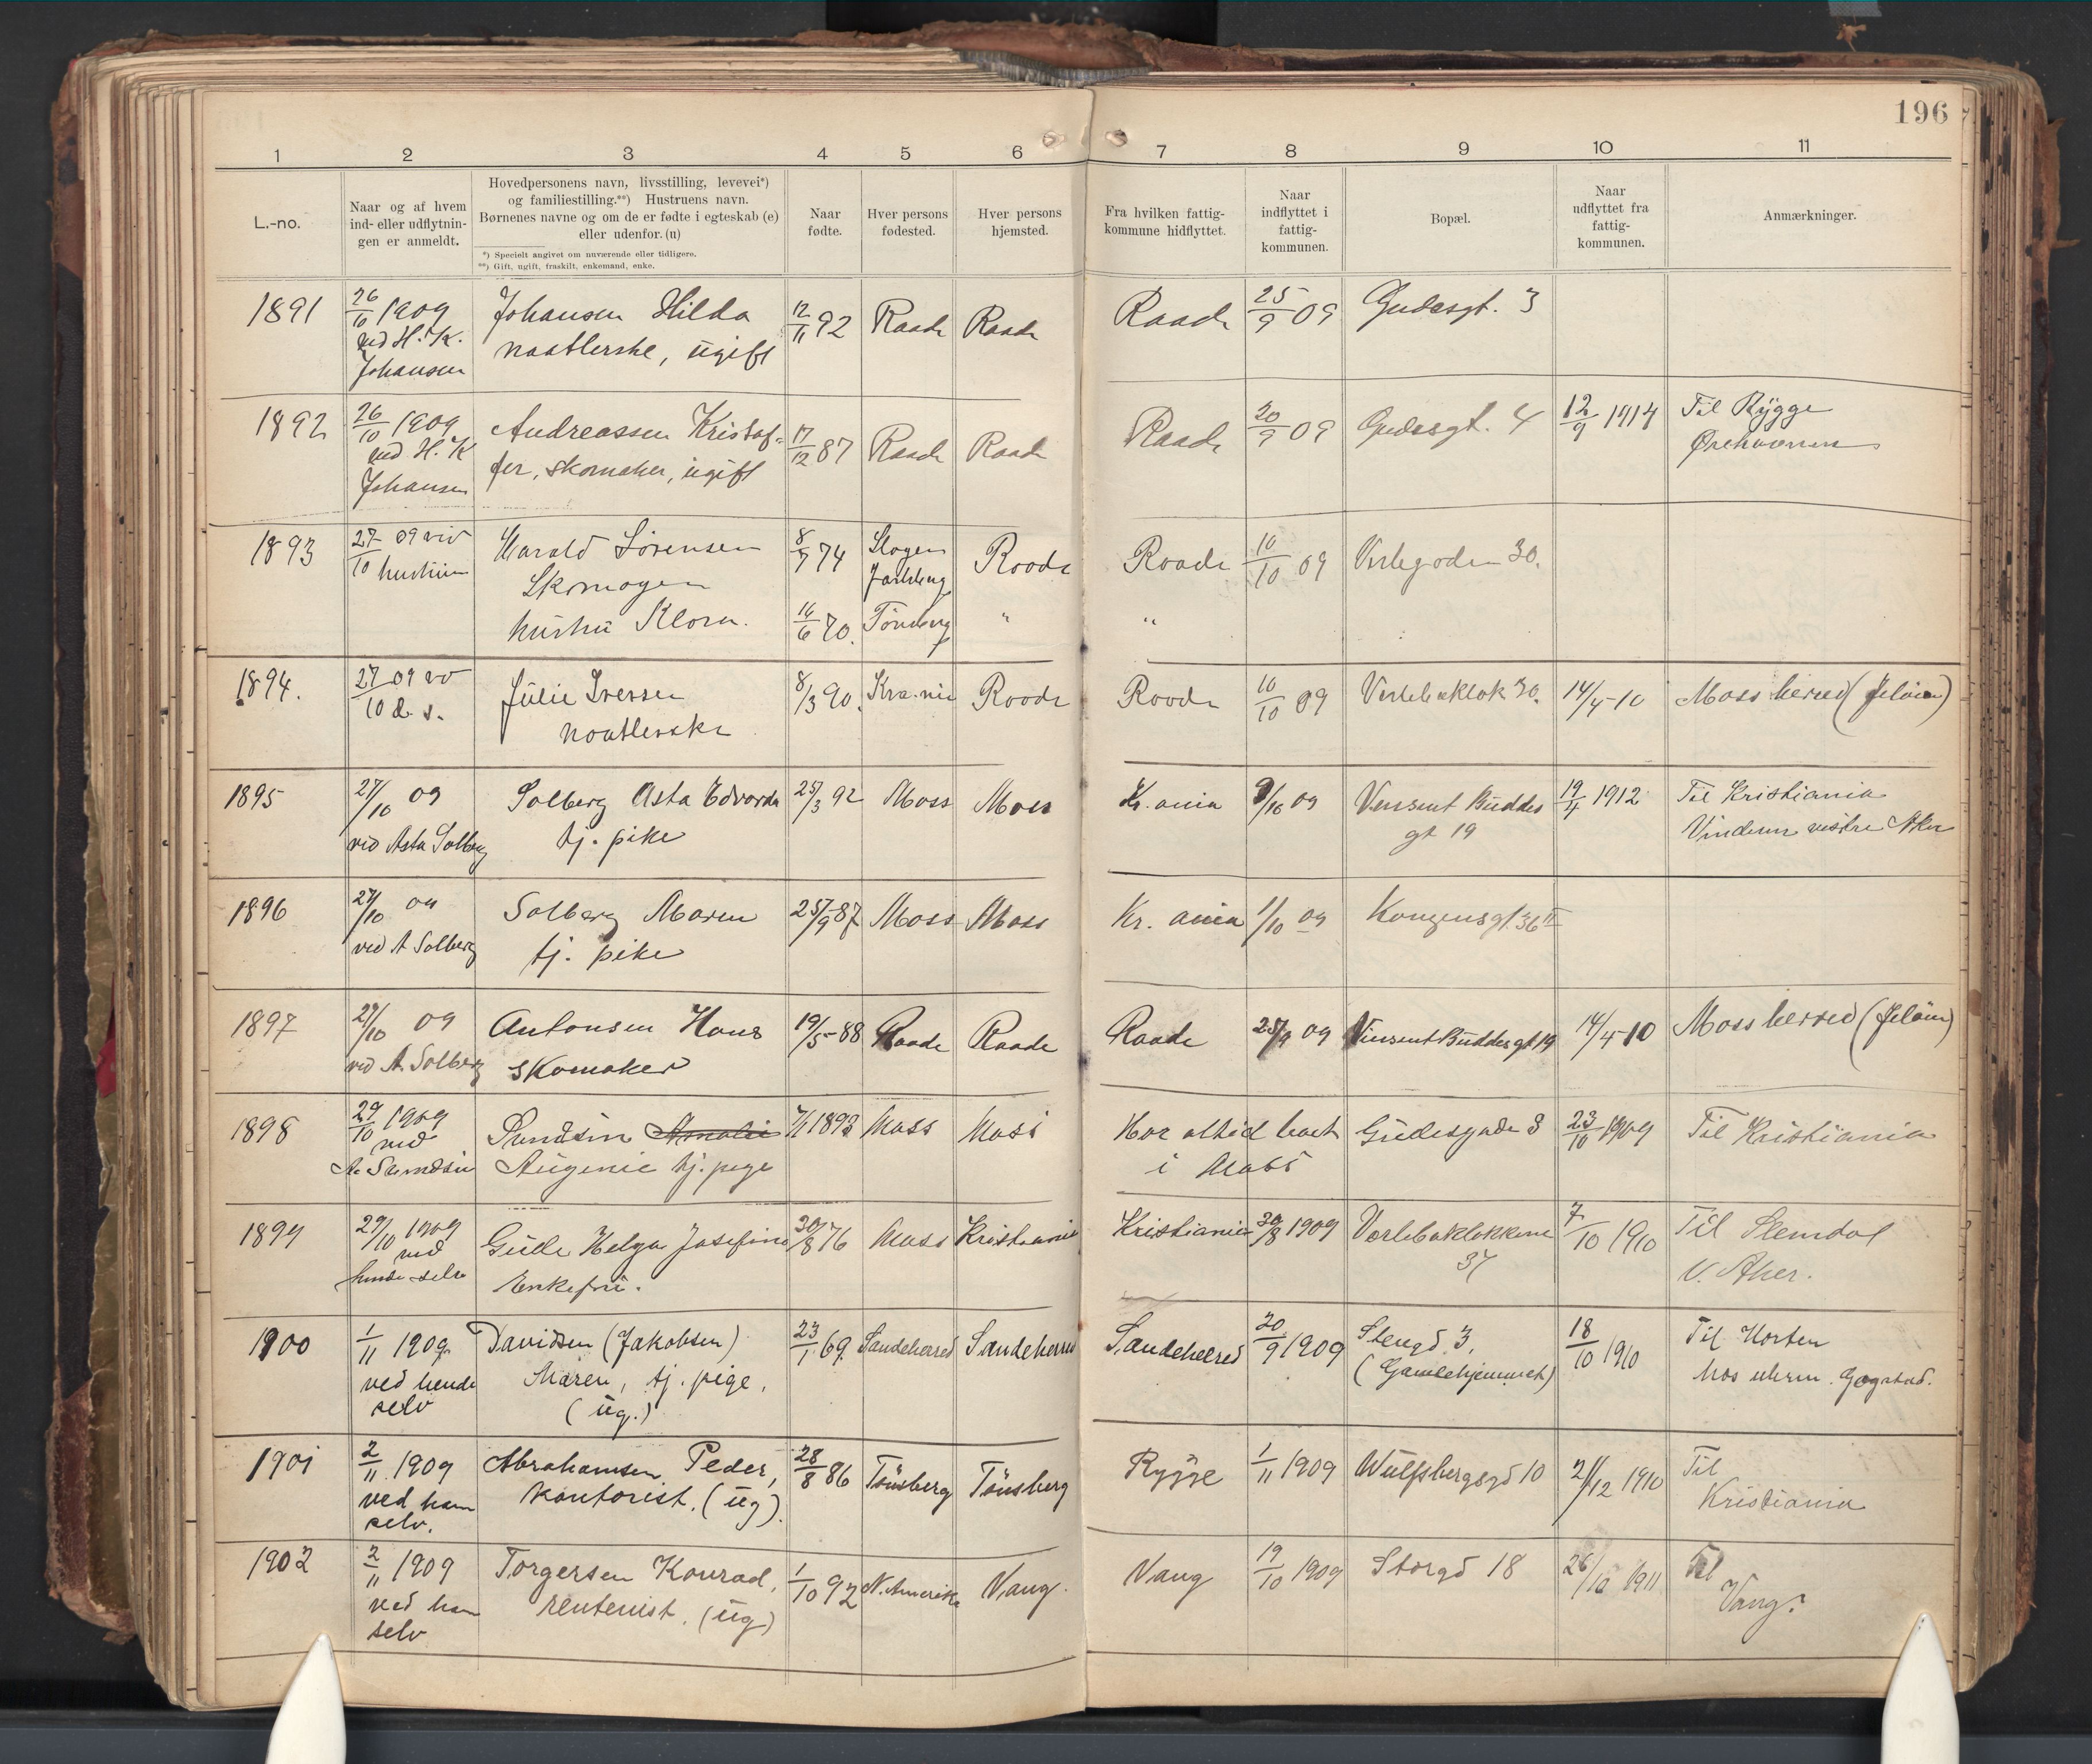 196
1 2 3 4 5 6 7 8 9 10 11
L.-no.
Naar og af hvem
ind- eller udflytnin-
gen er anmeldt.
Hovedpersonens navn, livsstilling, levevei*)
og familiestilling.**) Hustruens navn.
Børnenes navne og om de er fødte i egteskab (e)
eller udenfor. (u)
*) Specielt angivet om nuværende eller tidligere.
**) Gift, ugift, fraskilt, enkemand, enke.
Naar
fødte.
Hver persons
fødested.
Hver persons
hjemsted.
Fra hvilken fattig-
kommune hidflyttet.
Naar
indflyttet i
fattig-
kommunen.
Bopæl.
Naar
udflyttet fra
fattig-
kommunen.
Anmærkninger.
1891 26/10 1909 Johansen Hilda 12/11 92 Raade Raade Raade 25/9 09 Gudesgt. 3
ved H. K. naatlerske, ugift
Johansen
1892 26/10 1909 Andreassen Kristof- 17/12 87 Raade Raade Raade 20/9 09 Gudesgt. 4 12/9 1914 Til Rygge
ved H. K fer, skomaker, ugift
Johansen
1893 27/10 09 Harald Sørensen 8/7 74 Slagen Raade Raade 10/10 09 30.
Skomager Jarlsberg
hustru Klara. 16/6 70. Tønsberg " "
1894. 27/10 09 Julie Iversen 8/3 90. Kra.nia Raade Raade 10/10 09 Verlebaklok 30. 14/4-10 Moss herred (Jeløen)
d. s. naatlerske
1895 27/10 09 Solberg Asta Edvarda 25/3 92 Moss Moss Kr. ania 9/10 09 Vensent Buddes 19/4 1912 Til Kristiania
ved Asta Solberg tj. pike gt 19 Vinderen vestre Aker
1896 27/10 09 Solberg Maren 25/9 87 Moss Moss Kr. ania 1/10 09 Kongensgt. 36 II
ved A Solberg tj. pike
1897 27/10 09 Antonsen Hans 19/5-88 Raade Raade Raade 25/9 09 Vinsent Buddes gt 19 14/4-10 Moss herred (Jeløen)
ved A. Solberg skomaker
1898 29/10 1909 Sundsin Amalie 7/1 1893 Moss Moss Har altid boet Gudesgade 3 23/10 1909 Til Kristiania
ved Augenie tj. pige i Moss
A. Sundsin
1899 29/10 1909 Gulle Helga Josefine 30/8 76 Moss Kristiania Kristiania 30/8 1909 Verlebaklokkene 7/10 1910 Til Slemdal
ved Enkefru. 37 V. Aker.
hende selv
1900 1/11 1909 Davidsen (Jakobsen) 23/1 69. Sandeherred Sandeherred Sandeherred 20/9 1909 Stengd 3, 18/10 1910 Til Horten
ved hende Maren, tj. pige, (Gamlehjemmet) hos urm. Gogstad.
selv (ug.)
1901 2/11 1909 Abrahamsen Peder, 28/8 86 Tönsberg Tönsberg Rygge 1/11 1909 Wulfsbergsgd 10 21/12 1910 Til
ved ham kontorist. (ug). Kristiania
selv.
1902 2/11 1909 Torgersen Konrad, 1/10 92 N. Amerika Vang. Vang 19/10 1909 Storgd 18 26/10 1911 Til
ved ham rentenist. (ug) Vang.
selv